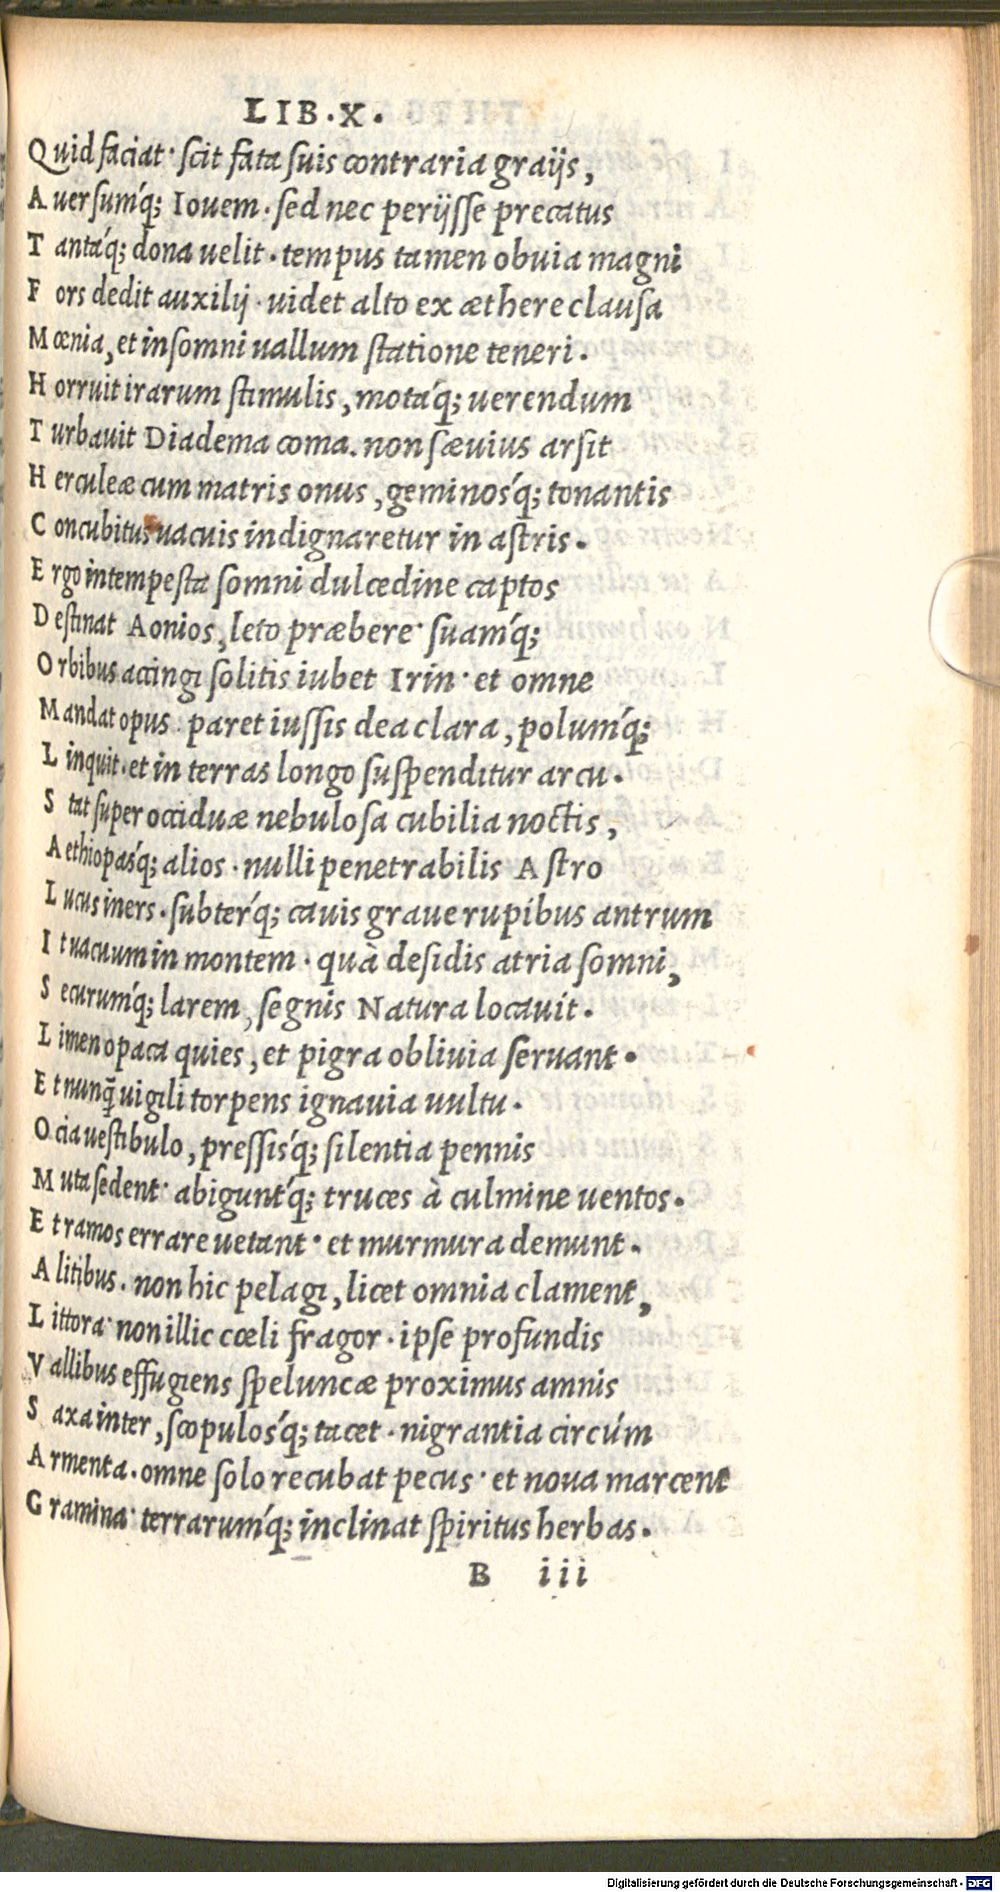 LIB.X.
Quid faciat· scit fata suis contraria graijs,
Auersumq́; Iouem. sed nec perijsse precatus
Tantaq́; dona uelit. tempus tamen obuia magni
Fors dedit auxilij. uidet alto ex æthere clausa
Mœnia, et insomni uallum statione teneri.
Horruit irarum stimulis, motaq́; uerendum
Turbauit Diadema coma. non sæuius arsit
Herculeæ cum matris onus, geminosq́; tonantis
Concubitus uacuis indignaretur in astris.
Ergo intempesta somni dulcedine captos
Destinat Aonios, leto præbere· suamq́;
Orbibus accingi solitis iubet Irin· et omne
Mandat opus. paret iussis dea clara, polumq́;
Linquit. et in terras longo suspenditur arcu.
Stat super occiduæ nebulosa cubilia noctis,
Aethiopasq́; alios. nulli penetrabilis Astro
Lucus iners. subterq́; cauis graue rupibus antrum
It uacuum in montem. quà desidis atria somni,
Securumq́; larem, segnis Natura locauit.
Limen opaca quies, et pigra obliuia seruant.
Et nunq̃ uigili torpens ignauia uultu.
Ocia uestibulo, pressisq́; silentia pennis
Muta sedent· abiguntq́; truces à culmine uentos.
Et ramos errare uetant· et murmura demunt.
Alitibus. non hic pelagi, licet omnia clament,
Littora· non illic cœli fragor. ipse profundis
Vallibus effugiens speluncæ proximus amnis
Saxa inter, scopulosq́; tacet. nigrantia circúm
Armenta. omne solo recubat pecus· et noua marcent
Gramina· terrarumq́; inclinat spiritus herbas.
B iii
Digitalisierung gefördert durch die Deutsche Forschungsgemeinschaft - DFG